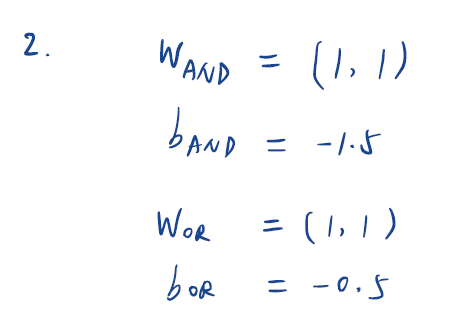 2. W_AND = (1, 1)
b_AND = -1.5
W_OR = (1, 1)
b_OR = -0.5